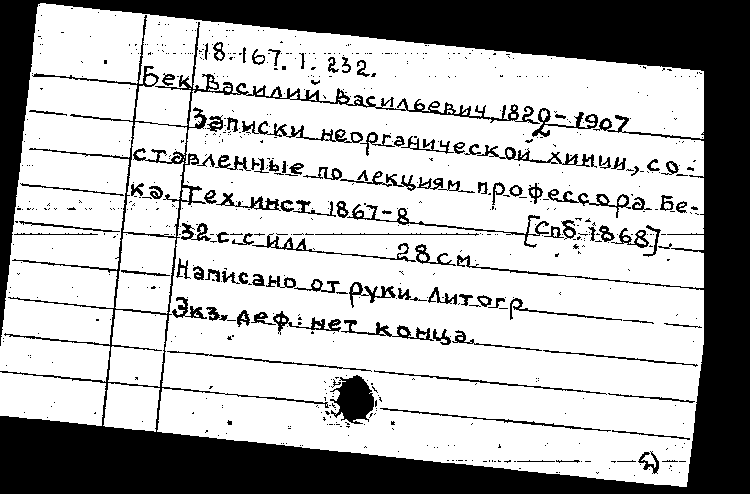 18.167.1.232.
Бек, Василий Васильевич, 1822-1907
Записки неорганической химии, со-
ставленные по лекциям профессора Бе-
ка. Тех. инст. 1867-8. [Спб. 1868].
32 с. с илл. 28 см.
Написано от руки. Литогр
Экз. деф.: нет конца.